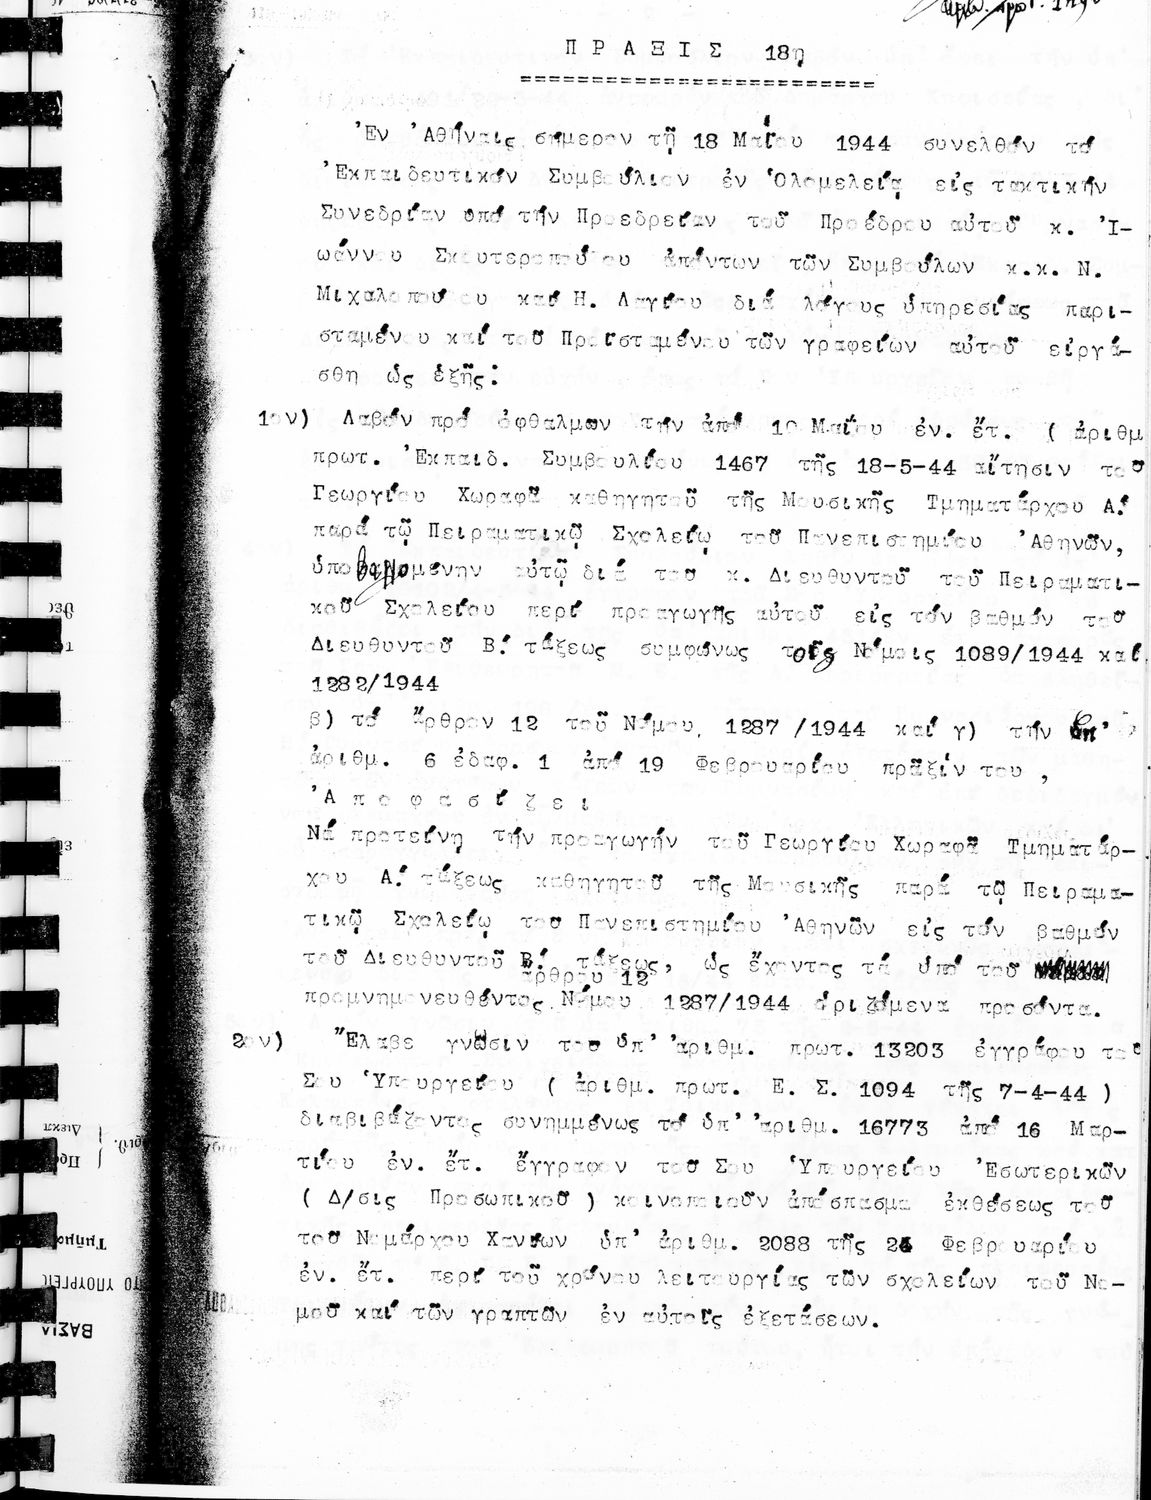 ΠΡΑΞΙΣ 18η
Ἐν Ἀθήναις σήμερον τῇ 18 Μαΐου 1944 συνελθόν τό
Ἐκπαιδευτικόν Συμβούλιον ἐν Ὁλομελείᾳ εἰς τακτικήν
Συνεδρίαν ὑπό τήν Προεδρείαν τοῦ Προέδρου αὐτοῦ κ. Ἰ-
ωάννου Σκουτεροπούλου ἁπάντων τῶν Συμβούλων κ.κ. Ν.
Μιχαλοπούλου καί Η. Λαγίου διά λόγους ὑπηρεσίας παρι-
σταμένου καί τοῦ Προϊσταμένου τῶν γραφείων αὐτοῦ εἰργά-
σθη ὡς ἑξῆς:
1ον) Λαβόν πρό ὀφθαλμων τήν ἀπό 10 Μαΐου ἐν. ἔτ. ( ἀριθμ
πρωτ. Ἐκπαιδ. Συμβουλίου 1467 τῆς 18-5-44 αἴτησιν τοῦ
Γεωργίου Χωραφᾶ καθηγητοῦ τῆς Μουσικῆς Τμηματάρχου Α!
παρά τῷ Πειραματικῷ Σχολείῳ τοῦ Πανεπιστημίου Ἀθηνῶν,
ὑποβαλλομένην αὐτῷ διά του κ. Διευθυντοῦ τοῦ Πειραματι-
κοῦ Σχολείου περί προαγωγῆς αὐτοῦ εἰς τόν βαθμόν τοῦ
Διευθυντοῦ Β! τάξεως συμφώνως τοῖς Νόμοις 1089/1944 καί
1282/1944
β) τό ἄρθρον 12 τοῦ Νόμου 1287 /1944 καί γ) τήν ὑπ'
ἀριθμ. 6 ἐδαφ. 1 ἀπό 19 Φεβρουαρίου πρᾶξίν του ,
Ἀποφασίζει
Νά προτείνῃ τήν προαγωγήν τοῦ Γεωργίου Χωραφᾶ Τμηματάρ-
χου Α! τάξεως καθηγητοῦ τῆς Μουσικῆς παρά τῷ Πειραμα-
τικῷ Σχολείῳ του Πανεπιστημίου Ἀθηνῶν εἰς τόν βαθμόν
τοῦ Διευθυντοῦ Β! τάξεως, ὡς ἔχοντος τά ὑπό τοῦ
ἄρθρου 12
προμνημονευθέντος Νόμου 1287/1944 ὁριζόμενα προσόντα.
2ον) Ἔλαβε γνῶσιν του ὑπ' ἀριθμ. πρωτ. 13203 ἐγγράφου τοῦ
Σου Ὑπουργείου ( ἀριθμ. πρωτ. Ε. Σ. 1094 τῆς 7-4-44 )
διαβιβάζοντος συνημμένως τό ὑπ' ἀριθμ. 16773 ἀπό 16 Μαρ-
τίου ἐν. ἔτ. ἔγγραφον του Σου Ὑπουργείου Ἐσωτερικῶν
( Δ/σις Προσωπικοῦ ) κοινοποιοῦν ἀπόσπασμα ἐκθέσεως τοῦ
τοῦ Νομάρχου Χανίων ὑπ' ἀριθμ. 2088 τῆς Φεβρουαρίου
ἐν. ἔτ. περί τοῦ χρόνου λειτουργίας τῶν σχολείων τοῦ Νο-
μοῦ καί τῶν γραπτῶν ἐν αὐτοῖς ἐξετάσεων.